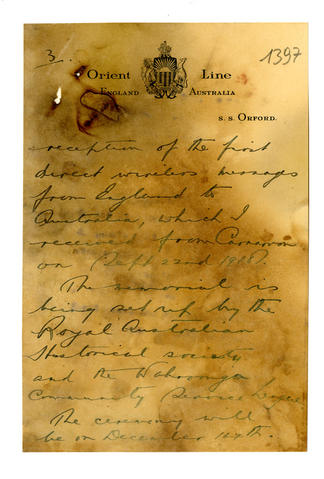 3.
1397
Orient Line
England Australia
S. S. Orford.
reception of the first
direct wireless messages
from England to
Australia, which I
received from Carnarvon
on (Sept 22nd 1918).
The memorial is
being set up by the
Royal Australian
Historical society
and the Wahroonga
Community Service League
The ceremony will
be on December 14th.